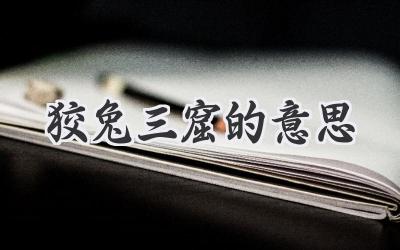 狡兔三窟的意思